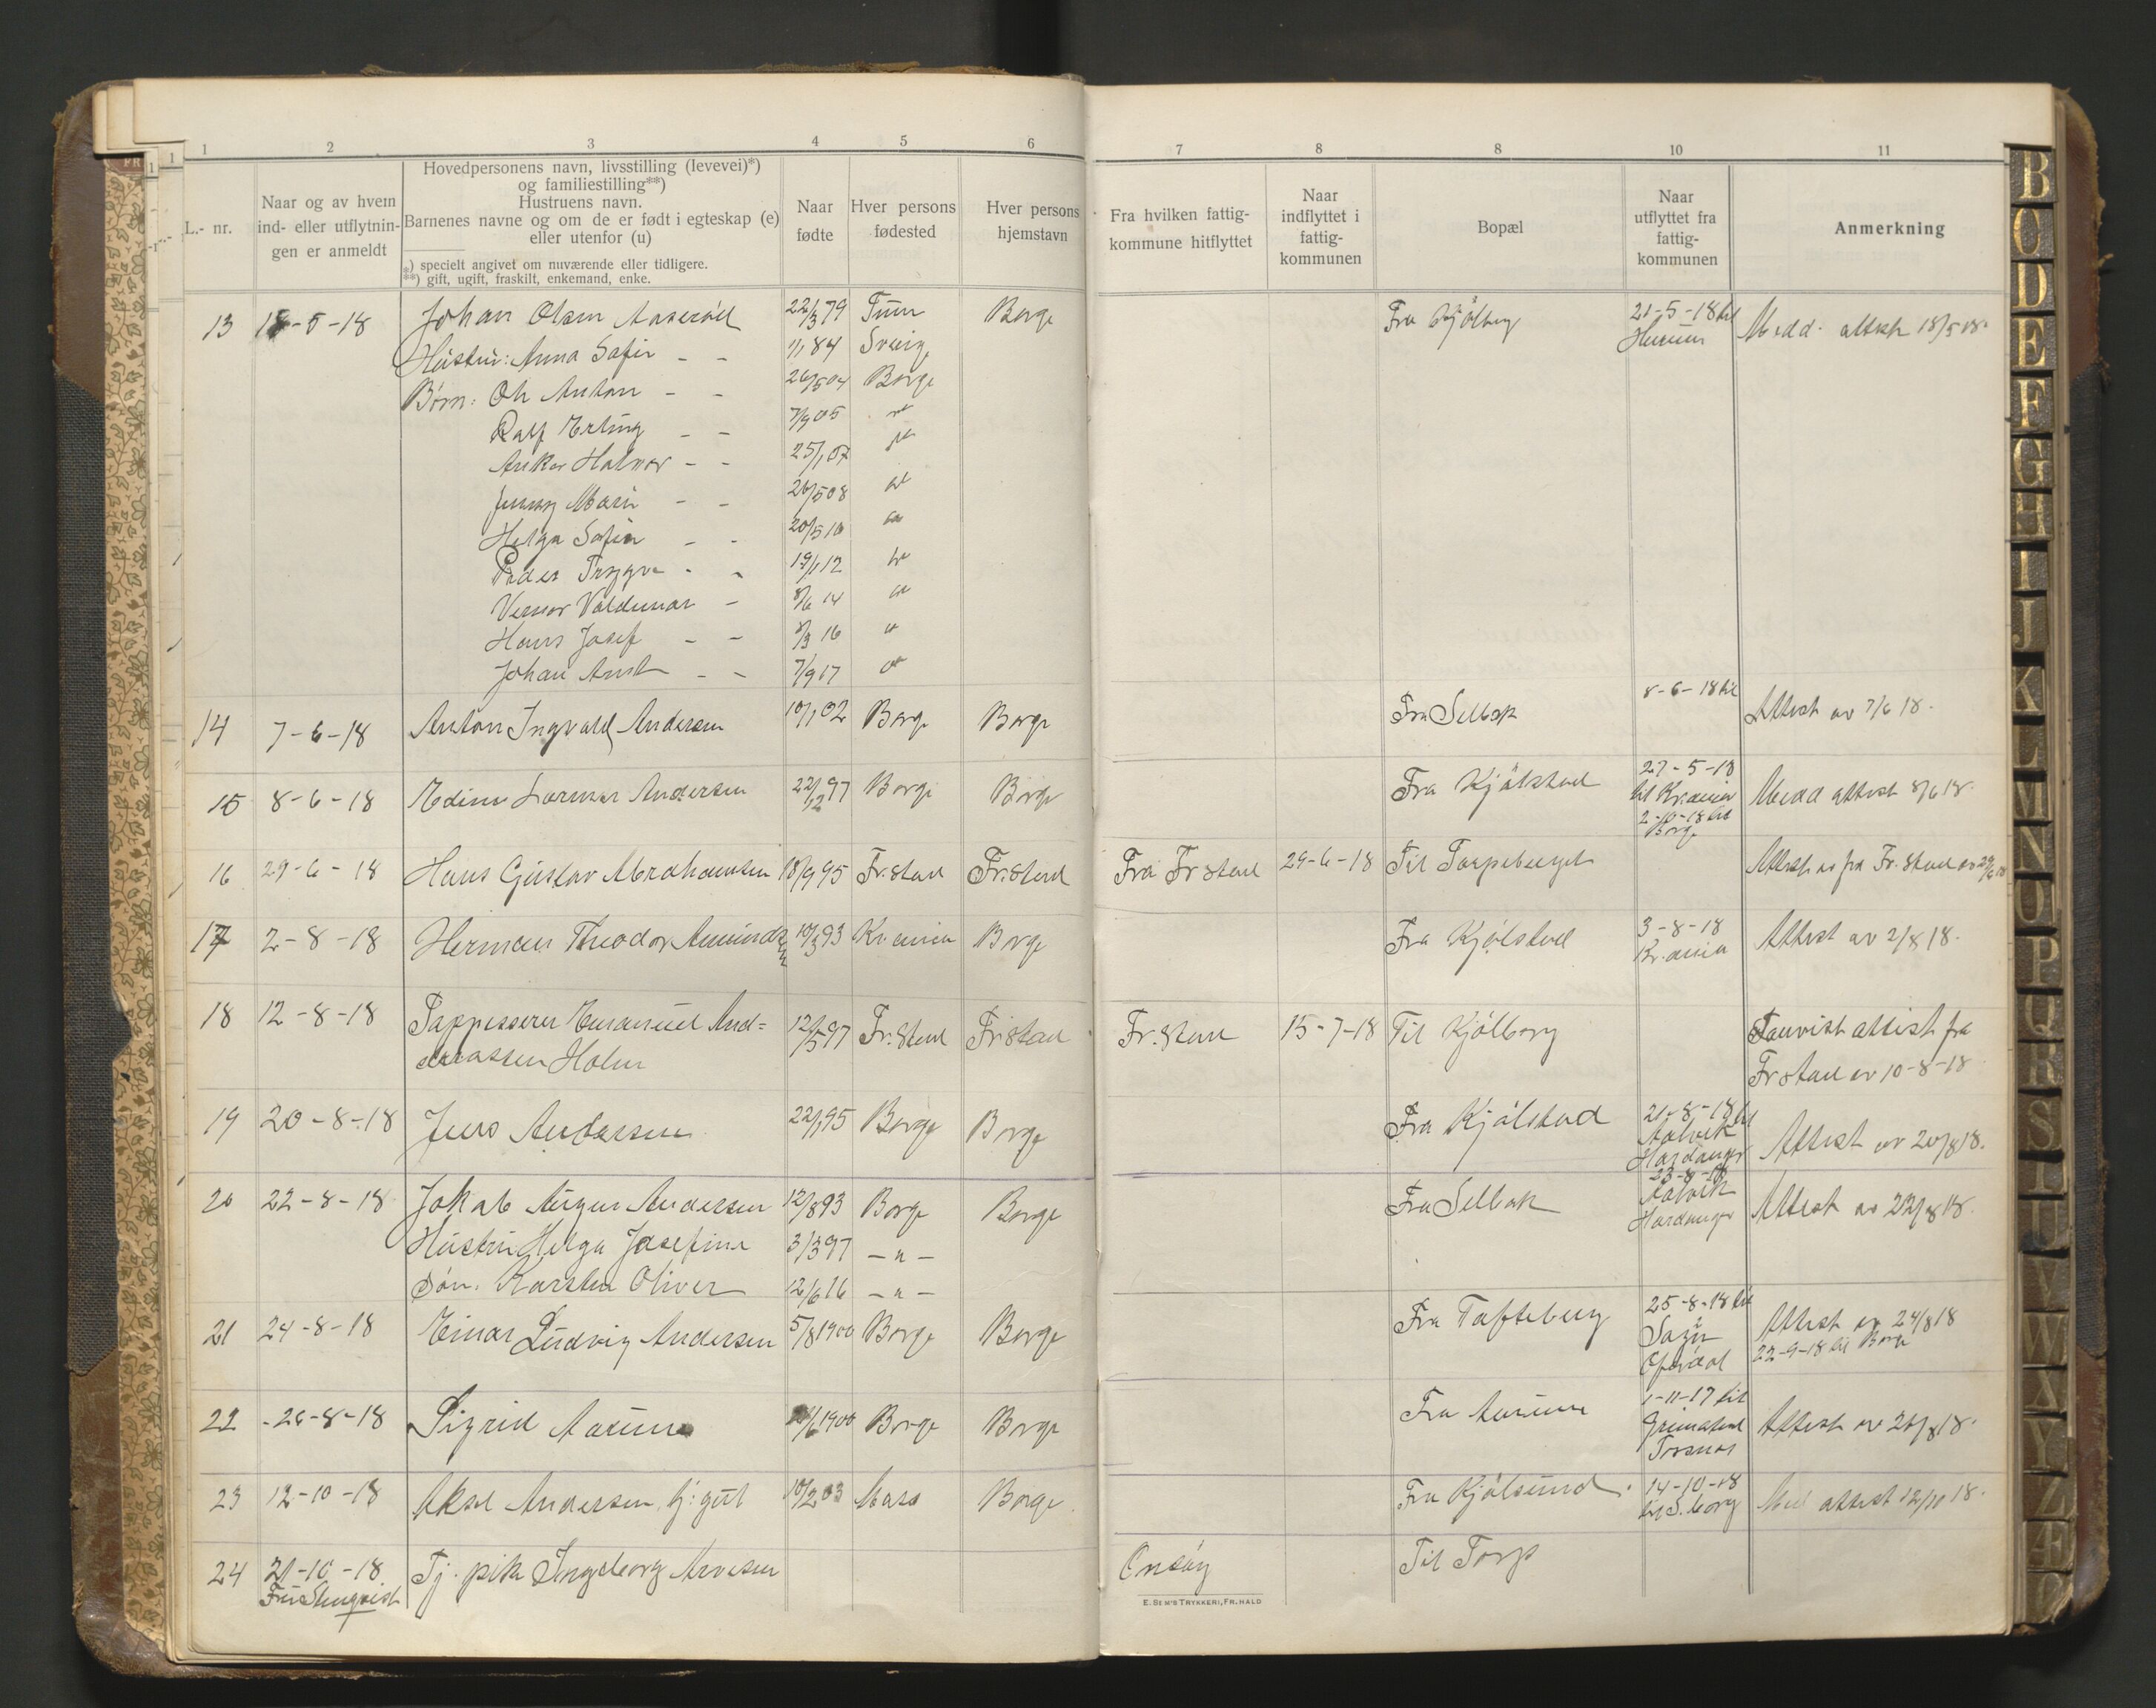 1 2 3 4 5 6 7 8 8 10 11
L.- nr.
Naar og av hvem
ind- eller utflytnin-
gen er anmeldt
Hovedpersonens navn, livsstilling (levevei)*)
og familiestilling**)
Hustruens navn.
Barnenes navne og om de er født i egteskap (e)
eller utenfor (u)
*) specielt angivet om nuværende eller tidligere.
**) gift, ugift, fraskilt, enkemand, enke.
Naar
fødte
Hver persons
fødested
Hver persons
hjemstavn
Fra hvilken fattig-
kommune hitflyttet
Naar
indflyttet i
fattig-
kommunen
Bopæl
Naar
utflyttet fra
fattig-
kommunen
Anmerkning
13 18-5-18 Johan Olsen Aaserød 22/3 79 Tune Borge Fra Kjølberg 21-5-18 til Medd. attest 18/5 18.
Hurum
Hustru: Anna Sofie - - 84 Sverig
Børn: Ole Anton - - 26/5 04 Borge
Ralf Erling - - 7/9 05
Anker Halvor - - 25/1 07
Jenny Marie - - 26/5 08
Helga Sofie - - 20/5 10
Peder Trygve - - 19/1 12
Verner Valdemar - 8/6 14
Hans Josef - - 8/3 16
Johan Arnt - - 7/9 17
14 7-6-18 Anton Ingvald Andersen 10/1 02 Borge Borge Fra Selbak 8-6-18 til Attest av 7/6 18.
15 8-6-18 Edin Andersen 22/12 97 Borge Borge Fra Kjølstad 27-5-18 Medd attest 8/6 18.
til Kr.ania
2-10-18 til
Borge
16 29-6-18 Hans Gustav Abrahamsen 18/9 95 Fr.stad Fr.stad Fra Fr stad 29-6-18 Til Torpeberget Attest av fra Fr.stad av 29/6 18
17 2-8-18 Herman Theodor Amundsen 10/3 93 Kr ania Borge Fra Kjølstad 3-8-18 Attest av 2/8 18.
Kr.ania
18 12-8-18 Emanuel And= 12/5 97 Fr.stad Fr.stad Fr.stad 15-7-18 Til Kjølberg attest fra
Holm Fr stad av 10-8-18
19 20-8-18 Jens Andersen 22/1 95 Borge Borge Fra Kjølstad 21-8-18 til Attest av 20/8 18.
Aalvik
Hardanger
20 22-8-18 Jokab August Andersen 12/8 93 Borge Borge Fra Selbak 23-8-18 Attest av 22/8 18.
Aalvik
Hardanger
Hustru Helga Josefine 3/3 97 - " -
Søn. Karsten Oliver 12/6 16 - " -
21 24-8-18 Einar Ludvig Andersen 5/8 1900 Borge Borge Fra Tofteberg 25-8-18 til Attest av 24/8 18
22-9-18 til Borge
22 -26-8-18 Sigrid Aarum 1900 Borge Borge Fra Aarum 1-11-17 til Attest av 26/8 18.
Grimstad
23 12-10-18 Aksel Andersen, tj: gut 10/2 03 Moss Borge Fra Kjølsund. 14-10-18 Med attest 12/10 18.
til S.borg
24 21-10-18 Tj. pike Ingeborg Arvesen Onsøy Til Torp
Fru Stenqvist
E. SEM'S TRYKKERI, FR.HALD
B O D E F G H I J K L M N O P Q R S T U V W X Y Z Æ Ø